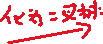 化为二叉树